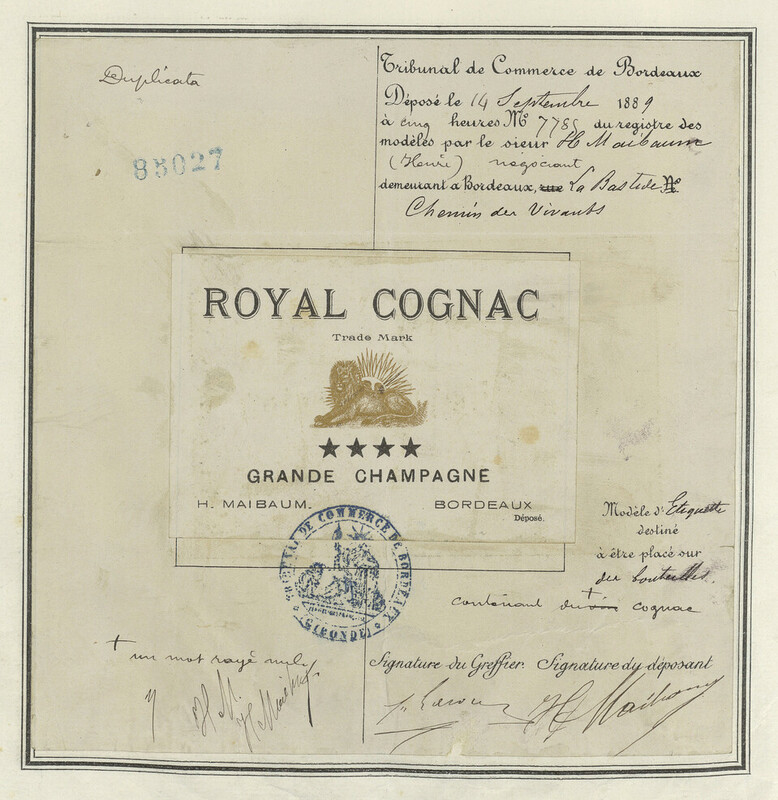 Duplicata
85027
Tribunal de Commerce de Bordeaux
Déposé le 14 Septembre 1889
à cinq heures No 7785 du registre des
modèles par le sieur H Maibaum
(Henri) négociant
demeurant à Bordeaux, rue La Bastide No
Chemin des Vivants
ROYAL COGNAC
Trade Mark
★★★★
GRANDE CHAMPAGNE
H. MAIBAUM. BORDEAUX
Déposé.
TRIBUNAL DE COMMERCE DE BORDEAUX
(GIRONDE)
Modèle d'Etiquette
destiné
à être placé sur
des bouteilles
contenant du + vin cognac
+ un mot rayé nul
H M.
H Maibaum
Signature du Greffier. Signature du déposant
H Maibaum